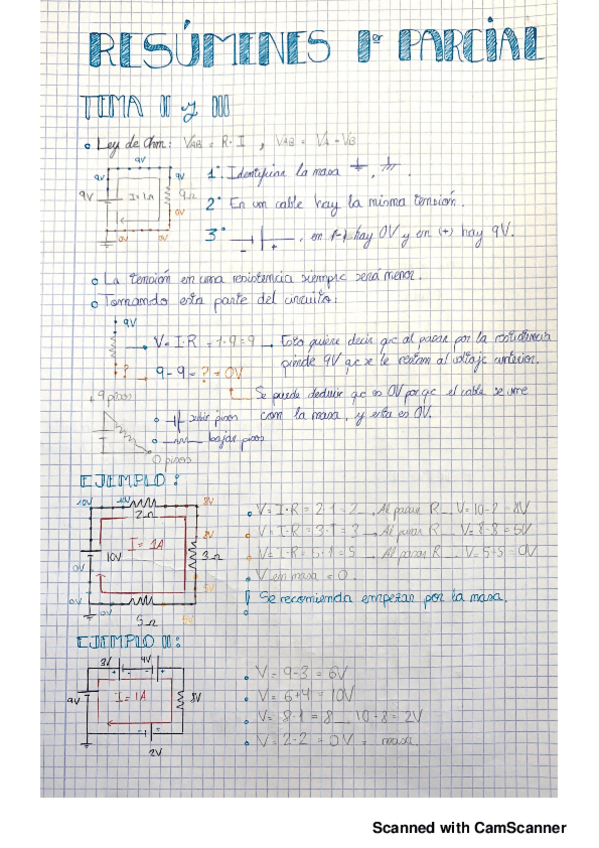 RESÚMENES 1er PARCIAL
TEMA II y III
Ley de Ohm: VAB = R·I , VAB = VA - VB
9V
9V 9V
9V I=1A 9Ω
0V
0V 0V
1º Identificar la masa
2º En un cable hay la misma tensión.
3º , en (-) hay 0V y en (+) hay 9V.
La tensión en una resistencia siempre será menor.
Tomando esta parte del circuito:
9V
V = I·R = 1·9 = 9 → Esto quiere decir qe al pasar por la resistencia
pierde 9V qe se le restan al voltaje anterior.
? → 9 - 9 = ? = 0V
Se puede deducir qe es 0V porqe el cable se une
con la masa, y esta es 0V.
9 pisos
subir pisos
bajar pisos
0 pisos
EJEMPLO :
10V 10V 8V
2Ω
I = 1A
10V
3Ω
0V
5V
0V 0V 5V
5Ω
V = I·R = 2·1 = 2 → Al pasar R → V = 10-2 = 8V
V = I·R = 3·1 = 3 → Al pasar R → V = 8-3 = 5V
V = I·R = 5·1 = 5 → Al pasar R → V = 5-5 = 0V
V en masa = 0.
Se recomienda empezar por la masa.
EJEMPLO II:
3V 4V
9V I = 1A 8V
2V
V = 9-3 = 6V
V = 6+4 = 10V
V = 8·1 = 8 → 10-8 = 2V
V = 2-2 = 0V = masa.
Scanned with CamScanner